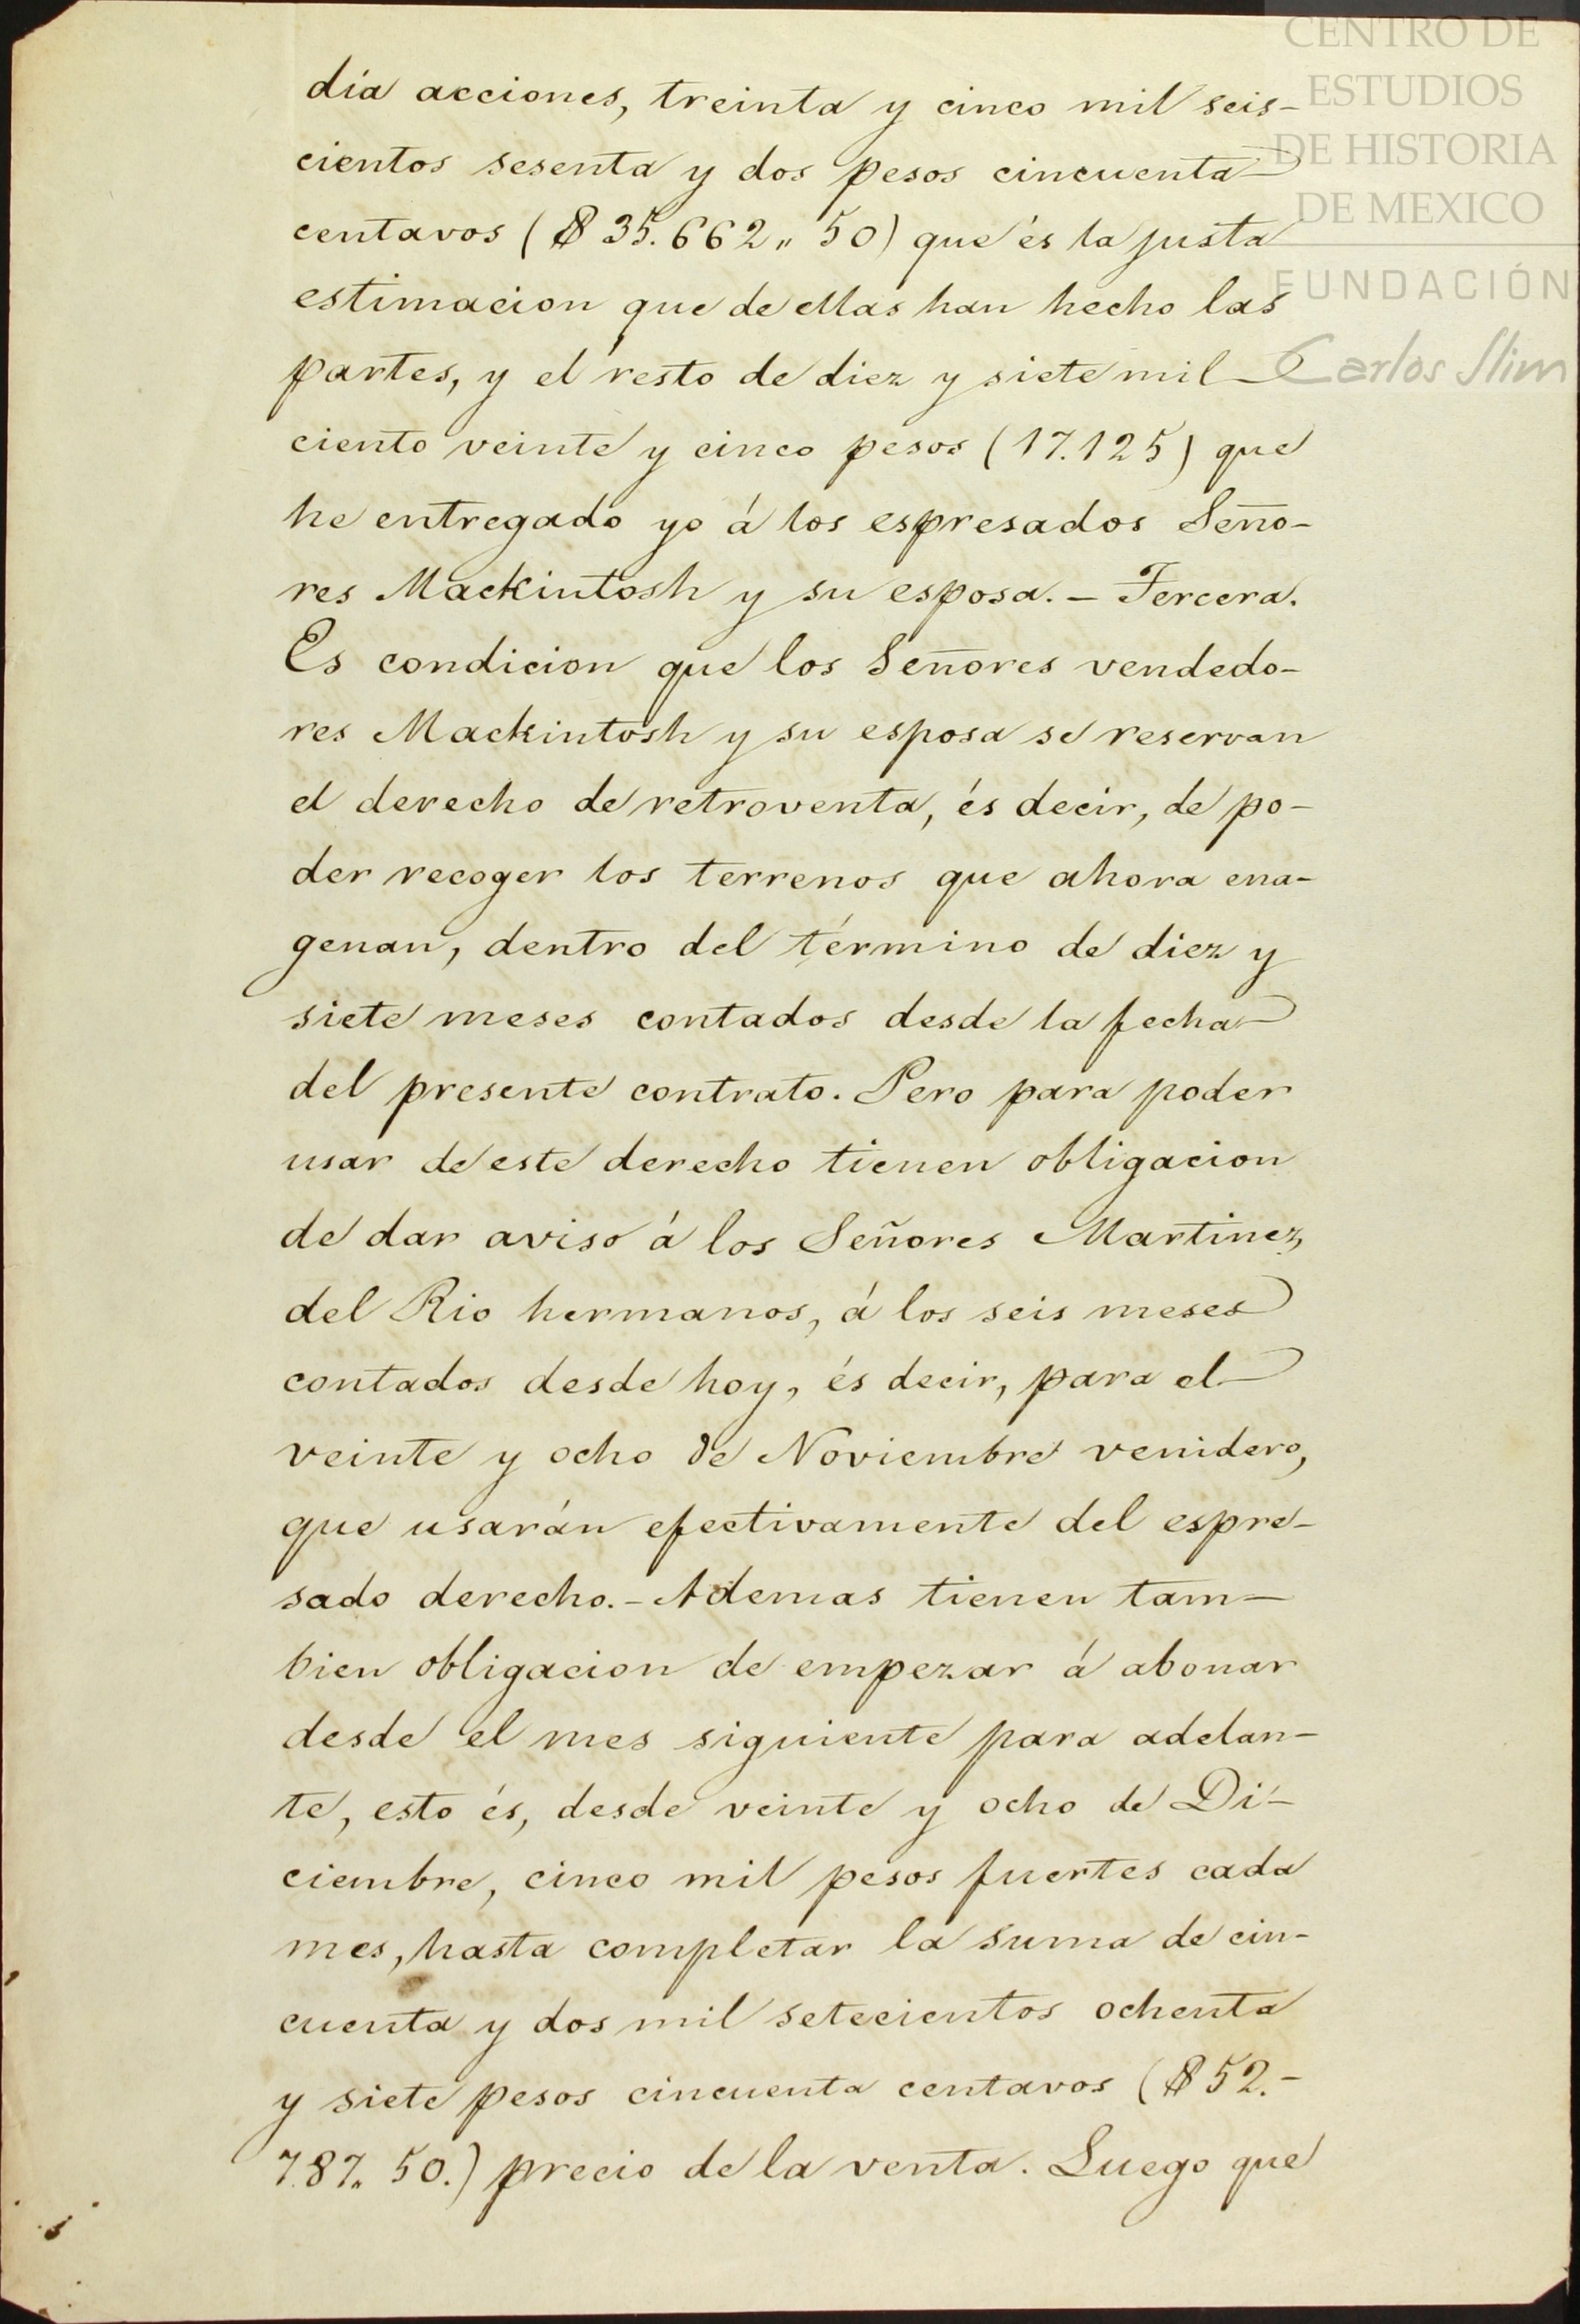 CENTRO DE
ESTUDIOS
DE HISTORIA
DE MEXICO
FUNDACIÓN
Carlos Slim
dia acciones, treinta y cinco mil seis-
cientos sesenta y dos pesos cincuenta
centavos ($ 35.662,, 50) que és la justa
estimacion que de ellas han hecho las
partes, y el resto de diez y siete mil
ciento veinte y cinco pesos (17.125) que
he entregado yo á los espresados Seño-
res Mackintosh y su esposa. - Tercera.
Es condicion que los Señores vendedo-
res Mackintosh y su esposa se reservan
el derecho de retroventa, és decir, de po-
der recoger los terrenos que ahora ena-
genan, dentro del término de diez y
siete meses contados desde la fecha
del presente contrato. Pero para poder
usar de este derecho tienen obligacion
de dar aviso á los Señores Martinez
del Rio hermanos, á los seis meses
contados desde hoy, és decir, para el
veinte y ocho de Noviembre venidero,
que usarán efectivamente del espre-
sado derecho. - Ademas tienen tam-
bien obligacion de empezar á abonar
desde el mes siguiente para adelan-
te, esto és, desde veinte y ocho de Di-
ciembre, cinco mil pesos fuertes cada
mes, hasta completar la suma de cin-
cuenta y dos mil setecientos ochenta
y siete pesos cincuenta centavos ($ 52.-
787,, 50.) precio de la venta. Luego que